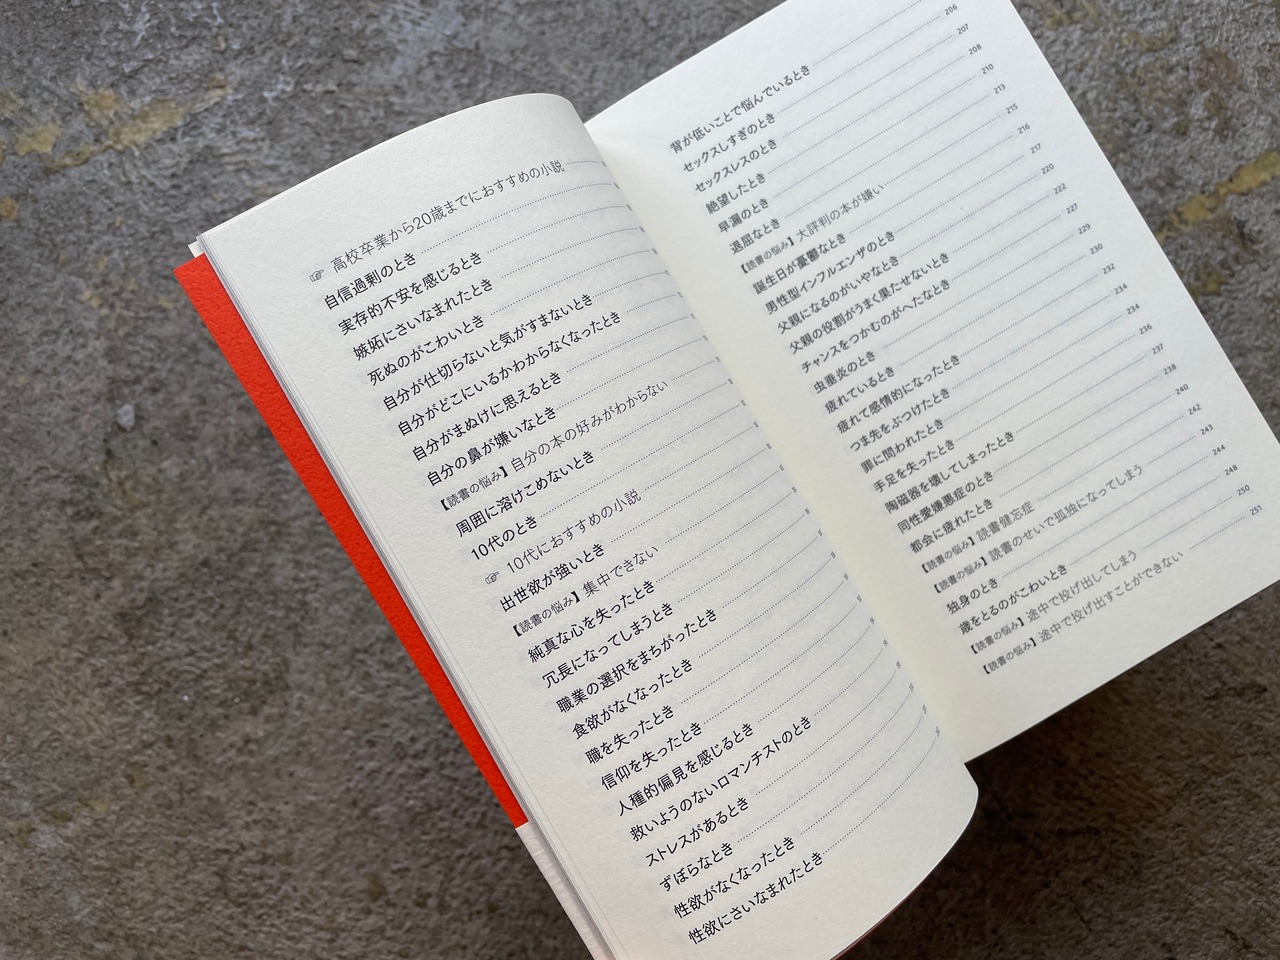 ☞ 高校卒業から20歳までにおすすめの小説
自信過剰のとき
実存的不安を感じるとき
嫉妬にさいなまれたとき
死ぬのがこわいとき
自分が仕切らないと気がすまないとき
自分がどこにいるかわからなくなったとき
自分がまぬけに思えるとき
自分の鼻が嫌いなとき
【読書の悩み】自分の本の好みがわからない
周囲に溶けこめないとき
10代のとき
☞ 10代におすすめの小説
出世欲が強いとき
【読書の悩み】集中できない
純真な心を失ったとき
冗長になってしまうとき
職業の選択をまちがったとき
食欲がなくなったとき
職を失ったとき
信仰を失ったとき
人種的偏見を感じるとき
救いようのないロマンチストのとき
ストレスがあるとき
ずぼらなとき
性欲がなくなったとき
性欲にさいなまれたとき
206
背が低いことで悩んでいるとき 207
セックスしすぎのとき 208
セックスレスのとき 210
絶望したとき 213
早漏のとき 215
退屈なとき 216
【読書の悩み】大評判の本が嫌い 217
誕生日が憂鬱なとき 220
男性型インフルエンザのとき 222
父親になるのがいやなとき 227
父親の役割がうまく果たせないとき 229
チャンスをつかむのがへたなとき 230
虫垂炎のとき 232
疲れているとき 234
疲れて感情的になったとき 234
つま先をぶつけたとき 236
罪に問われたとき 237
手足を失ったとき 238
陶磁器を壊してしまったとき 240
同性愛嫌悪症のとき 242
都会に疲れたとき 243
【読書の悩み】読書健忘症 244
【読書の悩み】読書のせいで孤独になってしまう 248
独身のとき 250
歳をとるのがこわいとき 251
【読書の悩み】途中で投げ出してしまう
【読書の悩み】途中で投げ出すことができない